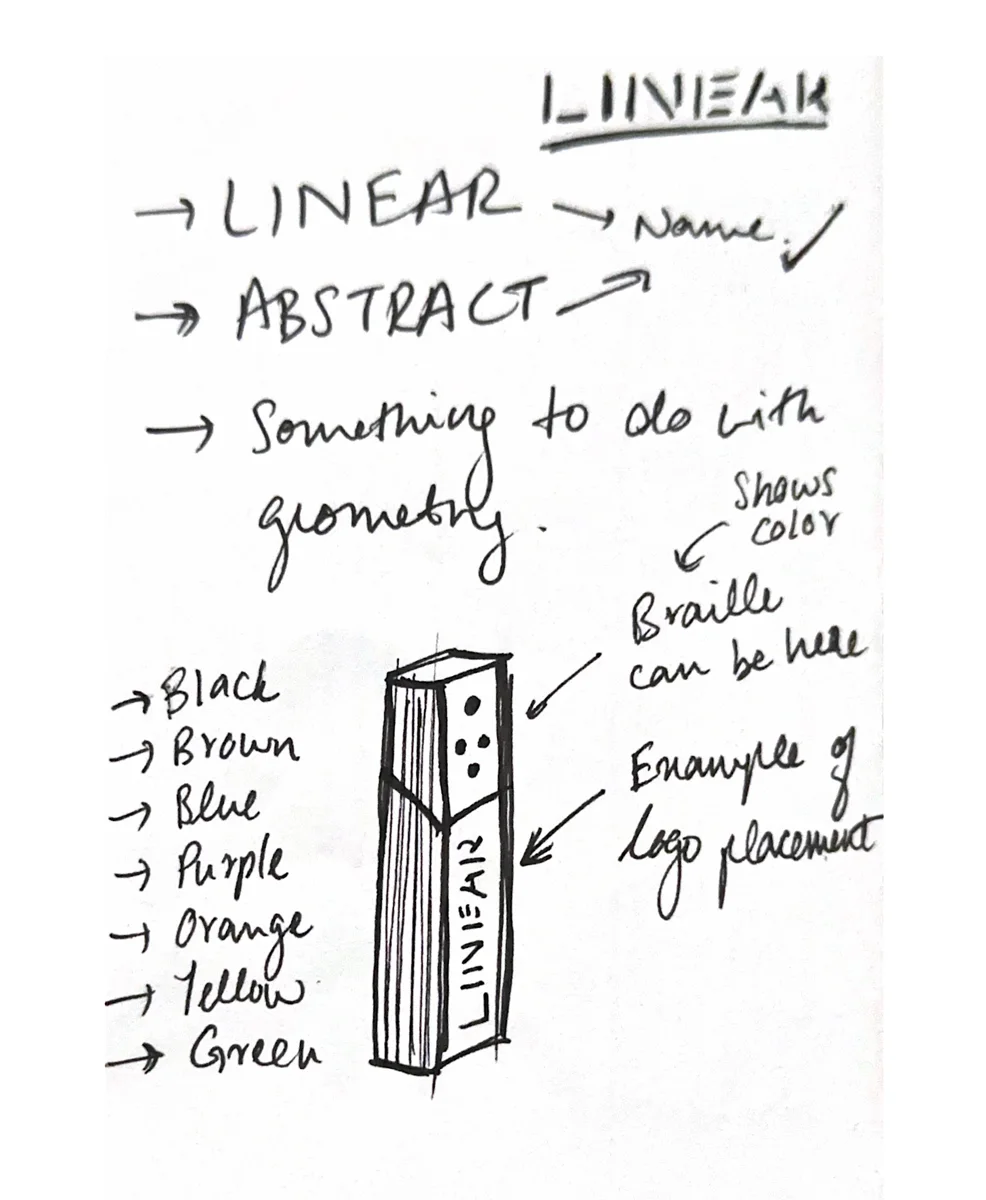 LINEAR
→ LINEAR → Name. ✓
→ ABSTRACT →
→ Something to do with
geometry.
Shows
color
Braille
can be here
→ Black
→ Brown
→ Blue
→ Purple
→ Orange
→ Yellow
→ Green
LINEAR
Example of
logo placement